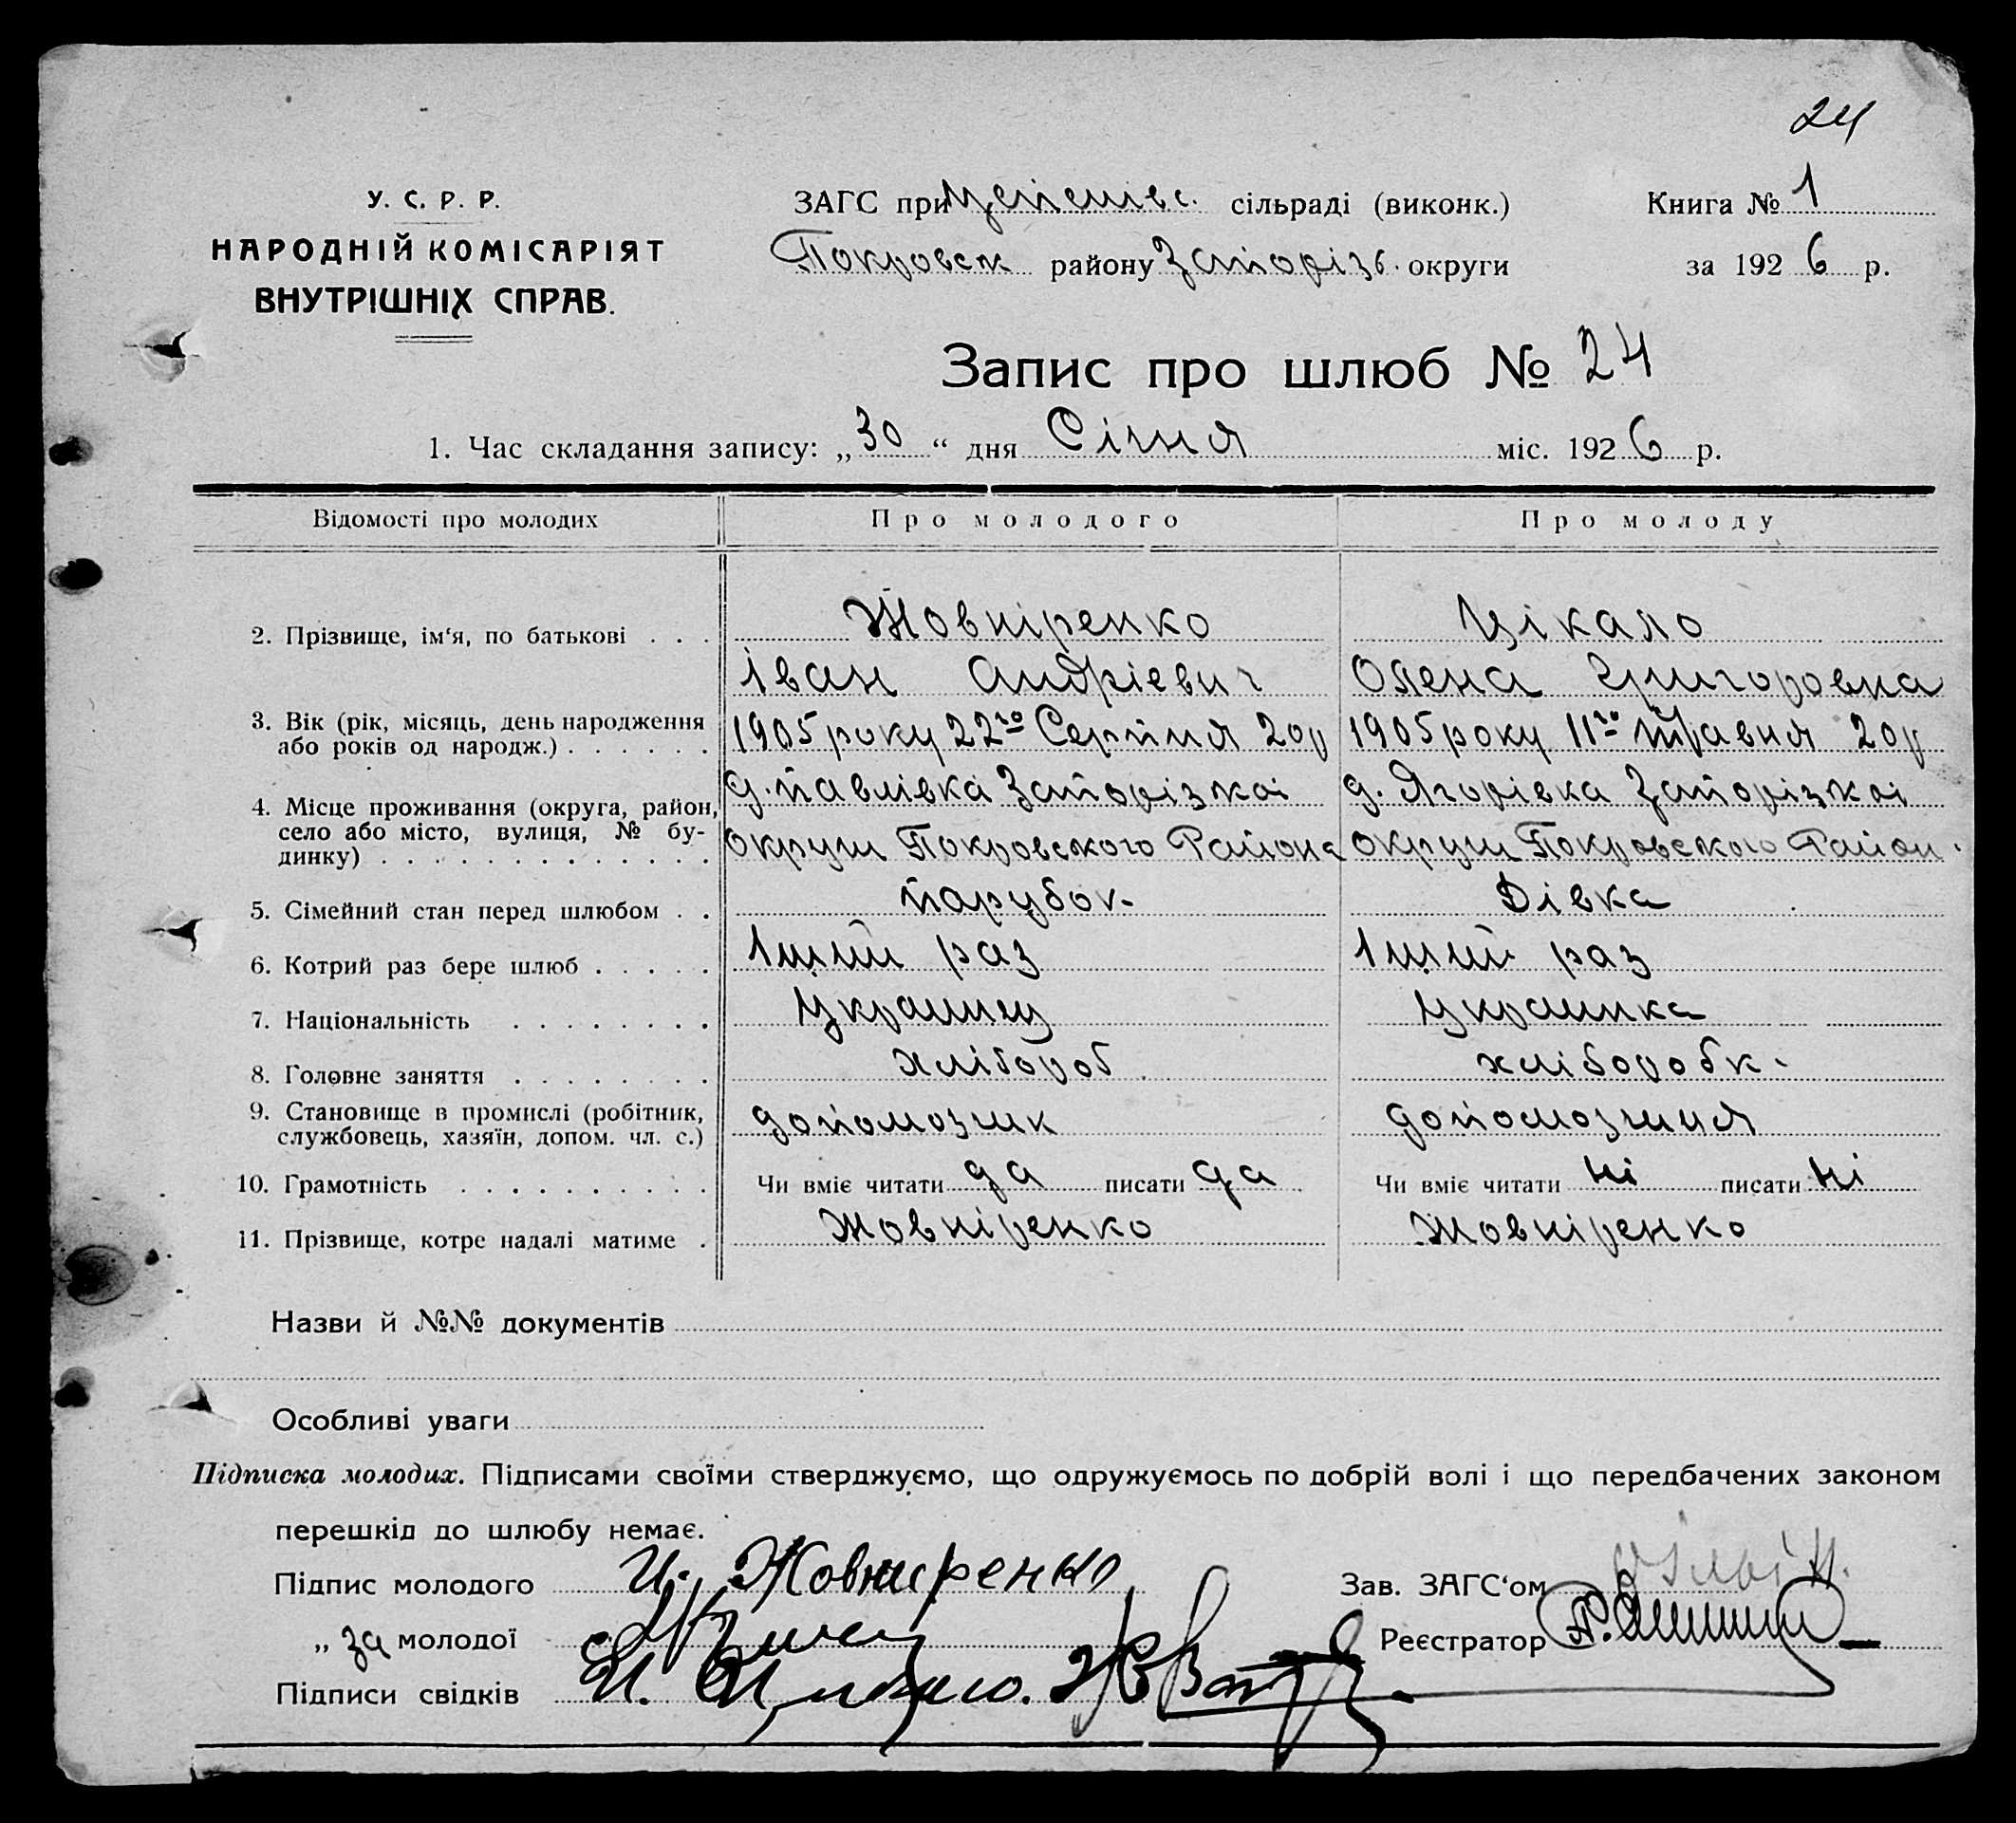 24
У. С. Р. Р.
НАРОДНІЙ КОМІСАРІЯТ
ВНУТРІШНІХ СПРАВ.
ЗАГС при сільраді (виконк.)
Покровськ району Запорізь. округи
Книга № 1
за 1926 р.
Запис про шлюб № 24
1. Час складання запису: „30“ дня Січня міс. 1926 р.
Відомості про молодих Про молодого Про молоду
2. Прізвище, ім‘я, по батькові . . . Жовніренко Цікало
Іван Андрієвич Олена Григоровна
3. Вік (рік, місяць, день народження
або років од народж.) . . . . . . 1905 року 22го Серпня 20р 1905 року 11го Травня 20р
4. Місце проживання (округа, район,
село або місто, вулиця, № бу-
динку) . . . . . . . . . . . . .
д. Павлівка Запорізкоі д. Ягорівка Запорізкоі
округи Покровського Района округи Покровського Район.
5. Сімейний стан перед шлюбом . . парубок Дівка
6. Котрий раз бере шлюб . . . . . 1ший раз 1ший раз
7. Національність . . . . . . . . Украинец Украинка
8. Головне заняття . . . . . . . . хлібороб хліборобк.
9. Становище в промислі (робітник,
службовець, хазяїн, допом. чл. с.) допомозчик допомозчиця
10. Грамотність . . . . . . . . . . Чи вміє читати да писати да Чи вміє читати ні писати ні
11. Прізвище, котре надалі матиме . Жовніренко Жовніренко
Назви й №№ документів
Особливі уваги
Підписка молодих. Підписами своїми стверджуємо, що одружуємось по добрій волі і що передбачених законом
перешкід до шлюбу немає.
Підпис молодого И. Жовниренко
Зав. ЗАГС‘ом
„ за молодої
Реєстратор
Підписи свідків